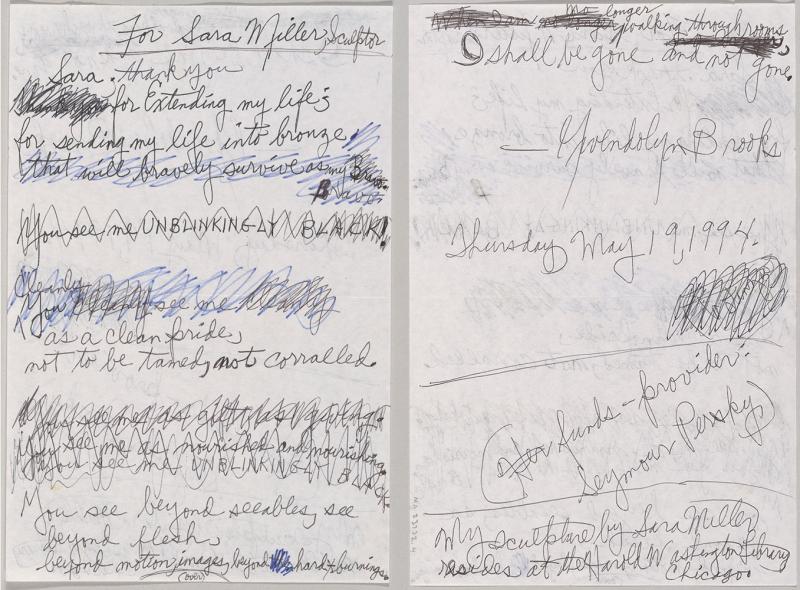 For Sara Miller, Sculptor
Sara. thank you
for Extending my life;
for sending my life into bronze
that will bravely survive as my Brav-
Brave
You see me UNBLINKINGLY BLACK!
Clearly
You see me
as a clean pride,
not to be tamed, not corralled.
You see me as
You see me as nourished and nourishing.
You see me UNBLINKINGLY BLACK.
You see beyond seeables, see
beyond flesh,
beyond motion, images, beyond hard burnings.
(over)
no longer
When I am walking through rooms
I shall be gone and not gone.
— Gwendolyn Brooks
Thursday May 19, 1994.
(Her funds-provider:
Seymour Persky)
My sculpture by Sara Miller
resides at the Harold Washington Library
Chicago.